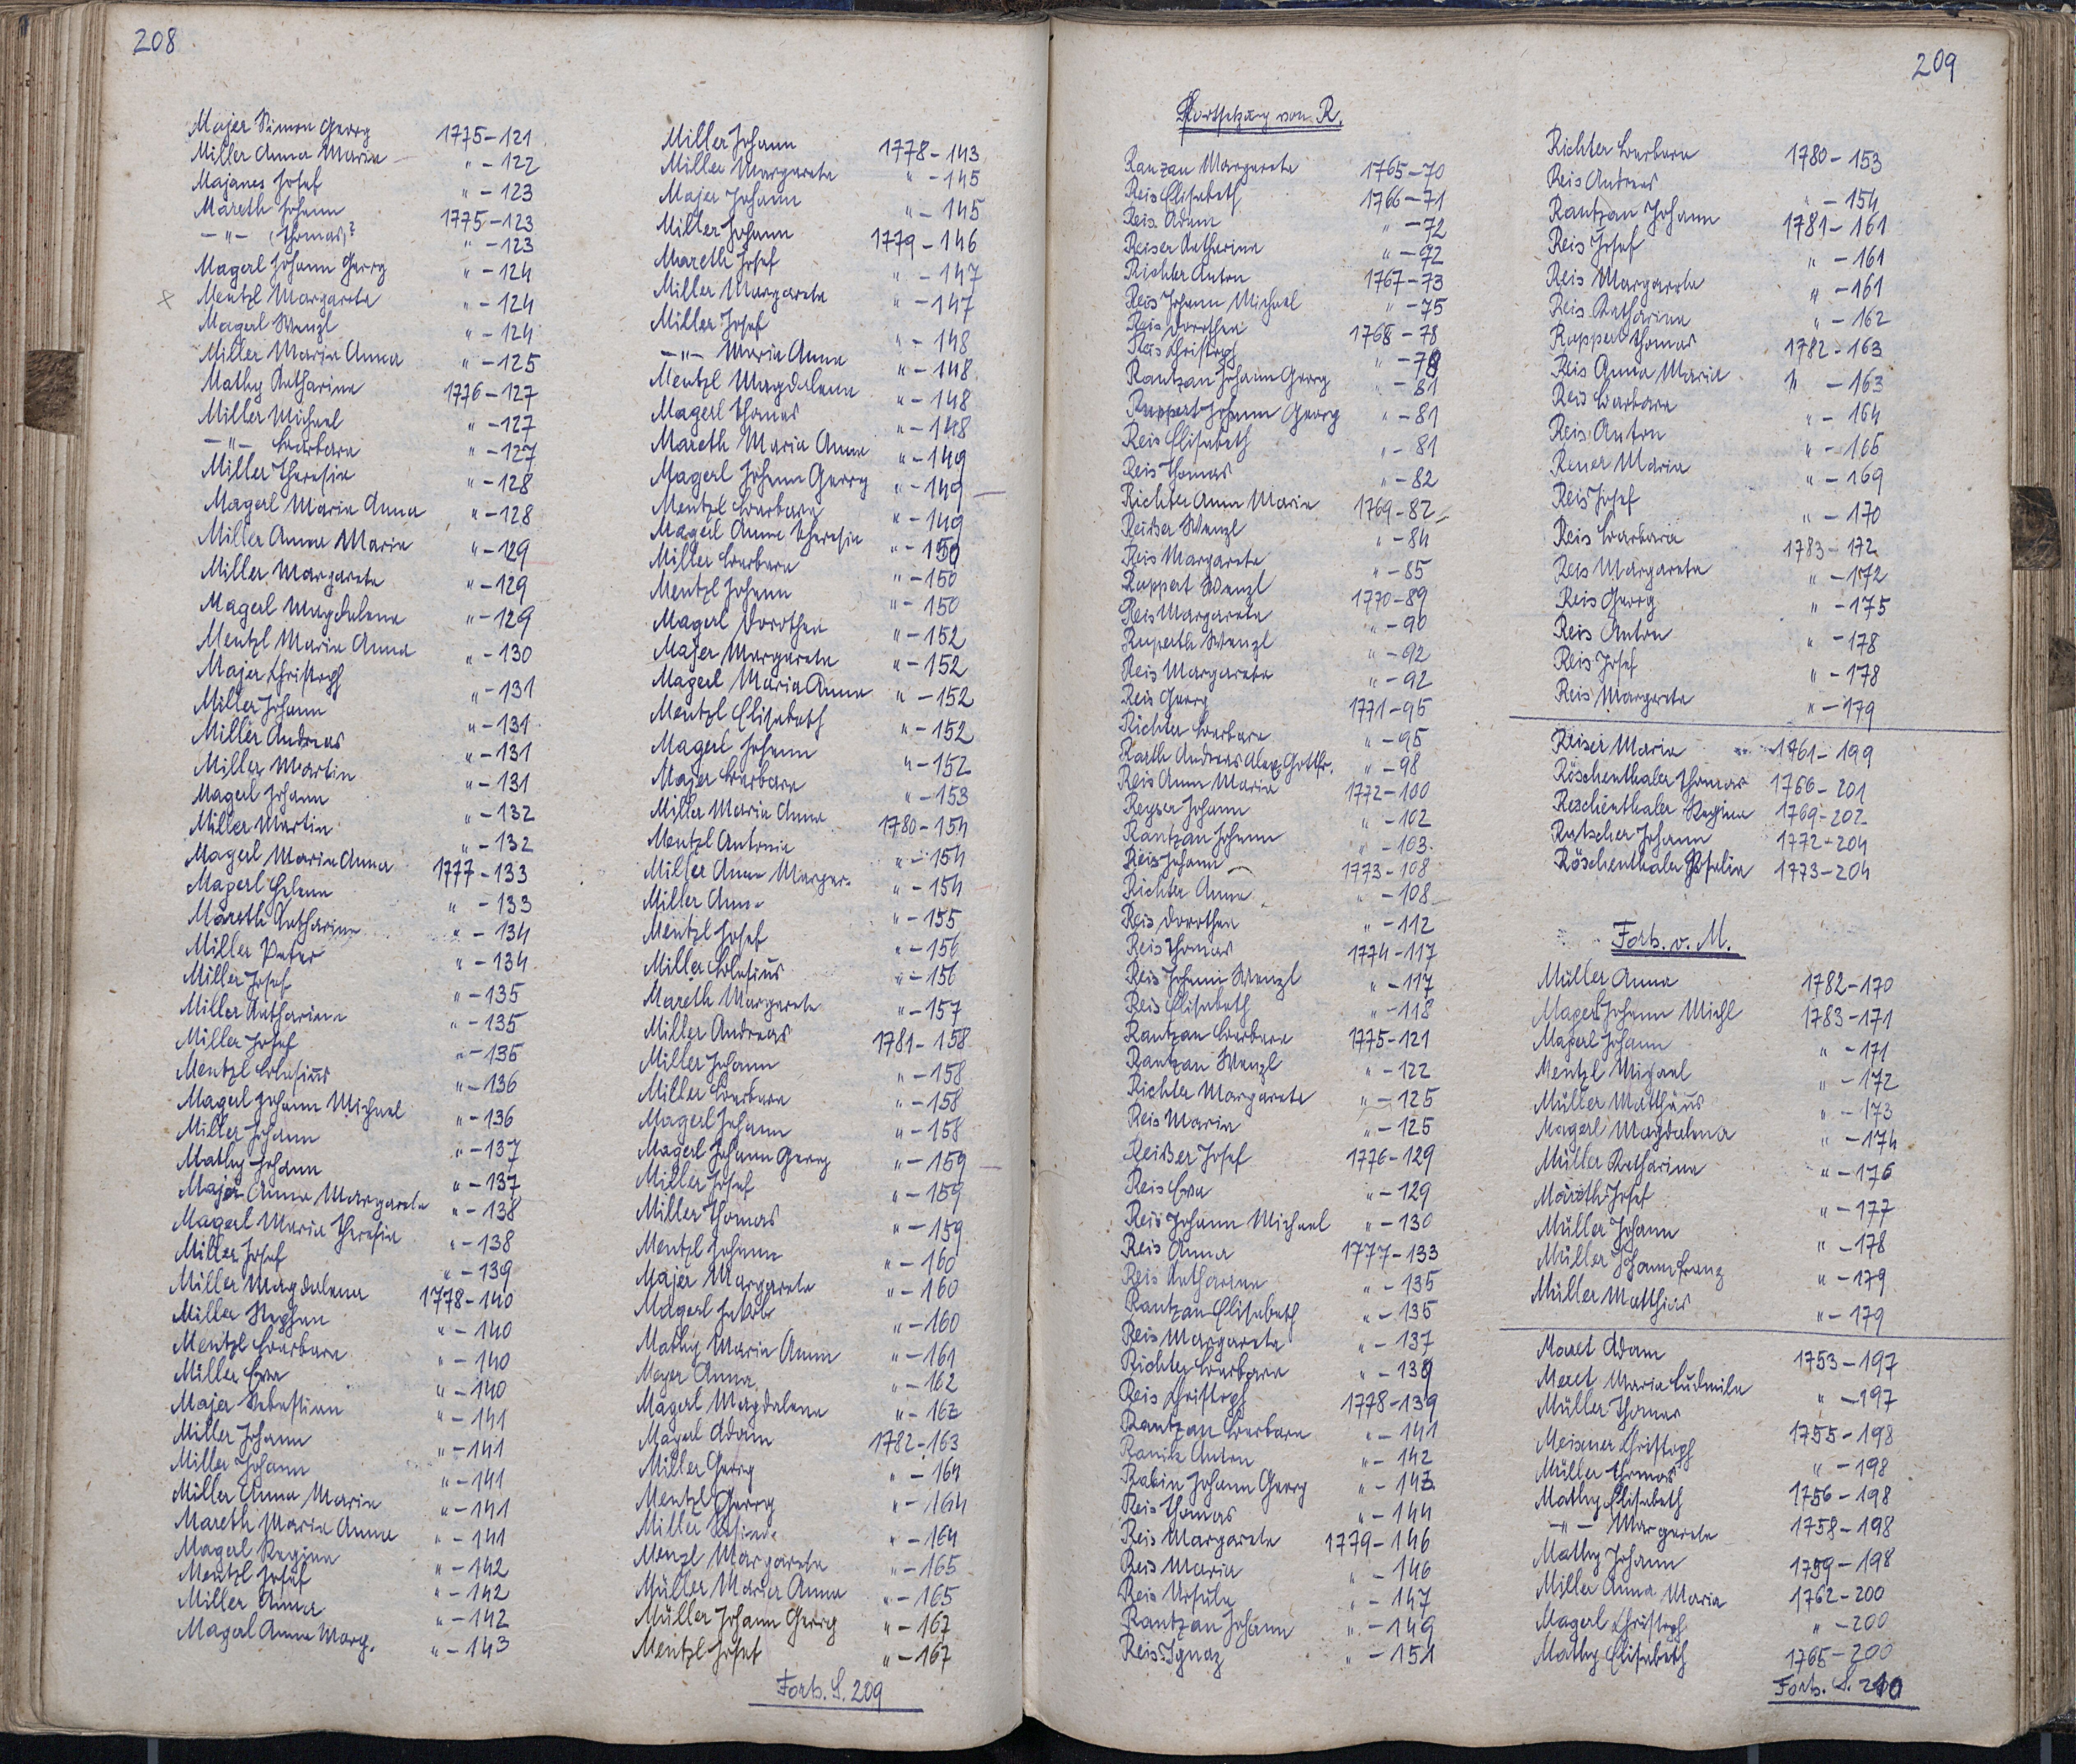 208
Majer Simon Georg 1775-121
Miller Anna Maria " -122
Majanes Josef " -123
Mareth Johann 1775-123
-"- (Thomas)? " -123
Magerl Johann Georg " -124
× Mentzl Margareta " -124
Magerl Wenzl " -124
Miller Maria Anna " -125
Mathy Katharina 1776-127
Miller Michael " -127
-"- Barbara " -127
Miller Theresia " -128
Magerl Maria Anna " -128
Miller Anna Maria " -129
Miller Margareta " -129
Magerl Magdalena " -129
Mentzl Maria Anna " -130
Majer Christoph " -131
Miller Johann " -131
Miller Andreas " -131
Miller Martin " -131
Magerl Johann " -132
Miller Martin " -132
Magerl Maria Anna 1777-133
Magerl Helena " -133
Mareth Katharina " -134
Miller Peter " -134
Miller Josef " -135
Miller Katharina " -135
Miller Josef " -135
Mentzl Blasius " -136
Magerl Johann Michael " -136
Miller Johann " -137
Mathy Johann " -137
Majer Anna Margareta " -138
Magerl Maria Theresia " -138
Miller Josef " -139
Miller Magdalena 1778-140
Miller Stephan " -140
Mentzl Barbara " -140
Miller Eva " -140
Majer Sebastian " -141
Miller Johann " -141
Miller Johann " -141
Miller Anna Maria " -141
Mareth Maria Anna " -141
Magerl Regina " -142
Mentzl Josef " -142
Miller Anna " -142
Magerl Anna Marg. " -143
Miller Johann 1778-143
Miller Margareta " -145
Majer Johann " -145
Miller Johann 1779-146
Mareth Josef " -147
Miller Margareta " -147
Miller Josef " -148
-"- Maria Anna " -148
Mentzl Magdalena " -148
Magerl Thomas " -148
Mareth Maria Anna " -149
Magerl Johann Georg " -149
Mentzl Barbara " -149
Magerl Anna Theresia " -150
Miller Barbara " -150
Mentzl Johann " -150
Magerl Dorothea " -152
Majer Margareta " -152
Magerl Maria Anna " -152
Mentzl Elisabeth " -152
Magerl Johann " -152
Majer Barbara " -153
Miller Maria Anna 1780-154
Mentzl Antonia " -154
Miller Anna Margar. " -154
Miller Anna " -155
Mentzl Josef " -156
Miller Blasius " -156
Mareth Margareta " -157
Miller Andreas 1781-158
Miller Johann " -158
Miller Barbara " -158
Magerl Johann " -158
Magerl Johann Georg " -159
Miller Josef " -159
Miller Thomas " -159
Mentzl Johann " -160
Majer Margareta " -160
Magerl Jakob " -160
Mathy Maria Anna " -161
Mayer Anna " -162
Magerl Magdalena " -162
Magerl Adam 1782-163
Miller Georg " -164
Mentzl Georg " -164
Miller " -164
Menzl Margareta " -165
Müller Maria Anna " -165
Müller Johann Georg " -167
Mentzl Josef " -167
Forts. S. 209
209
Fortsetzung von R.
Ranzan Margareta 1765-70
Reis Elisabeth 1766-71
Reis Adam " -72
Reiser Katharina " -72
Richter Anton 1767-73
Reis Johann Michael " -75
Reis Dorothea 1768-78
Reis Christoph " -78
Rantzan Johann Georg " -81
Ruppert Johann Georg " -81
Reis Elisabeth " -81
Reis Thomas " -82
Richter Anna Maria 1769-82
Reißer Wenzl " -84
Reis Margareta " -85
Ruppert Wenzl 1770-89
Reis Margareta " -90
Ruperth Wenzl " -92
Reis Margareta " -92
Reis Georg 1771-95
Richter Barbara " -95
Rarth Andreas Alex. Gottfr. " -98
Reis Anna Maria 1772-100
Reyser Johann " -102
Rantzan Johann " -103
Reis Johann 1773-108
Richter Anna " -108
Reis Dorothea " -112
Reis Thomas 1774-117
Reis Johann Wenzl " -117
Reis Elisabeth " -118
Rantzan Barbara 1775-121
Rantzan Wenzl " -122
Richter Margareta " -125
Reis Maria " -125
Reißer Josef 1776-129
Reis Eva " -129
Reis Johann Michael " -130
Reis Anna 1777-133
Reis Katharina " -135
Rantzan Elisabeth " -135
Reis Margareta " -137
Richter Barbara " -139
Reis Christoph 1778-139
Rantzan Barbara " -141
Ranik Anton " -142
Rabin Johann Georg " -143
Reis Thomas " -144
Reis Margareta 1779-146
Reis Maria " -146
Reis Ursula " -147
Rantzan Johann " -149
Reis Ignaz " -151
Richter Barbara 1780-153
Reis Andreas " -154
Rantzan Johann 1781-161
Reis Josef " -161
Reis Margareta " -161
Reis Katharina " -162
Ruppert Thomas 1782-163
Reis Anna Maria " -163
Reis Barbara " -164
Reis Anton " -165
Rener Maria " -169
Reis Josef " -170
Reis Barbara 1783-172
Reis Margareta " -172
Reis Georg " -175
Reis Anton " -178
Reis Josef " -178
Reis Margareta " -179
Reiser Maria 1761-199
Röschenthaler Thomas 1766-201
Reschenthaler Regina 1769-202
Rutscher Johann 1772-204
Röschenthaler Rosalia 1773-204
Forts. v. M.
Müller Anna 1782-170
Magerl Johann Michl 1783-171
Magerl Johann " -171
Mentzl Michael " -172
Müller Matthäus " -173
Magerl Magdalena " -174
Müller Katharina " -176
Mareth Josef " -177
Müller Johann " -178
Müller Johann Franz " -179
Müller Matthias " -179
Maret Adam 1753-197
Meret Maria Ludmila " -197
Müller Thomas 1755-198
Meixner Christoph " -198
Müller Thomas 1756-198
Mathy Elisabeth 1758-198
-"- Margareta
Mathy Johann 1759-198
Miller Anna Maria 1762-200
Magerl Christoph " -200
Mathy Elisabeth 1765-200
Forts. S. 210